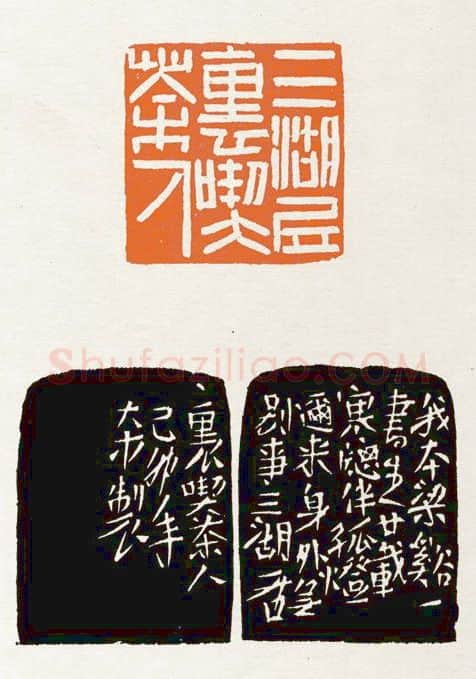 三湖居
裏喫
茶人
Shufaziliao.COM
我本梁谿一
書生廿載
寒窗伴孤燈
邇來身外無
别事三湖居
裏喫茶人
己卯年
製